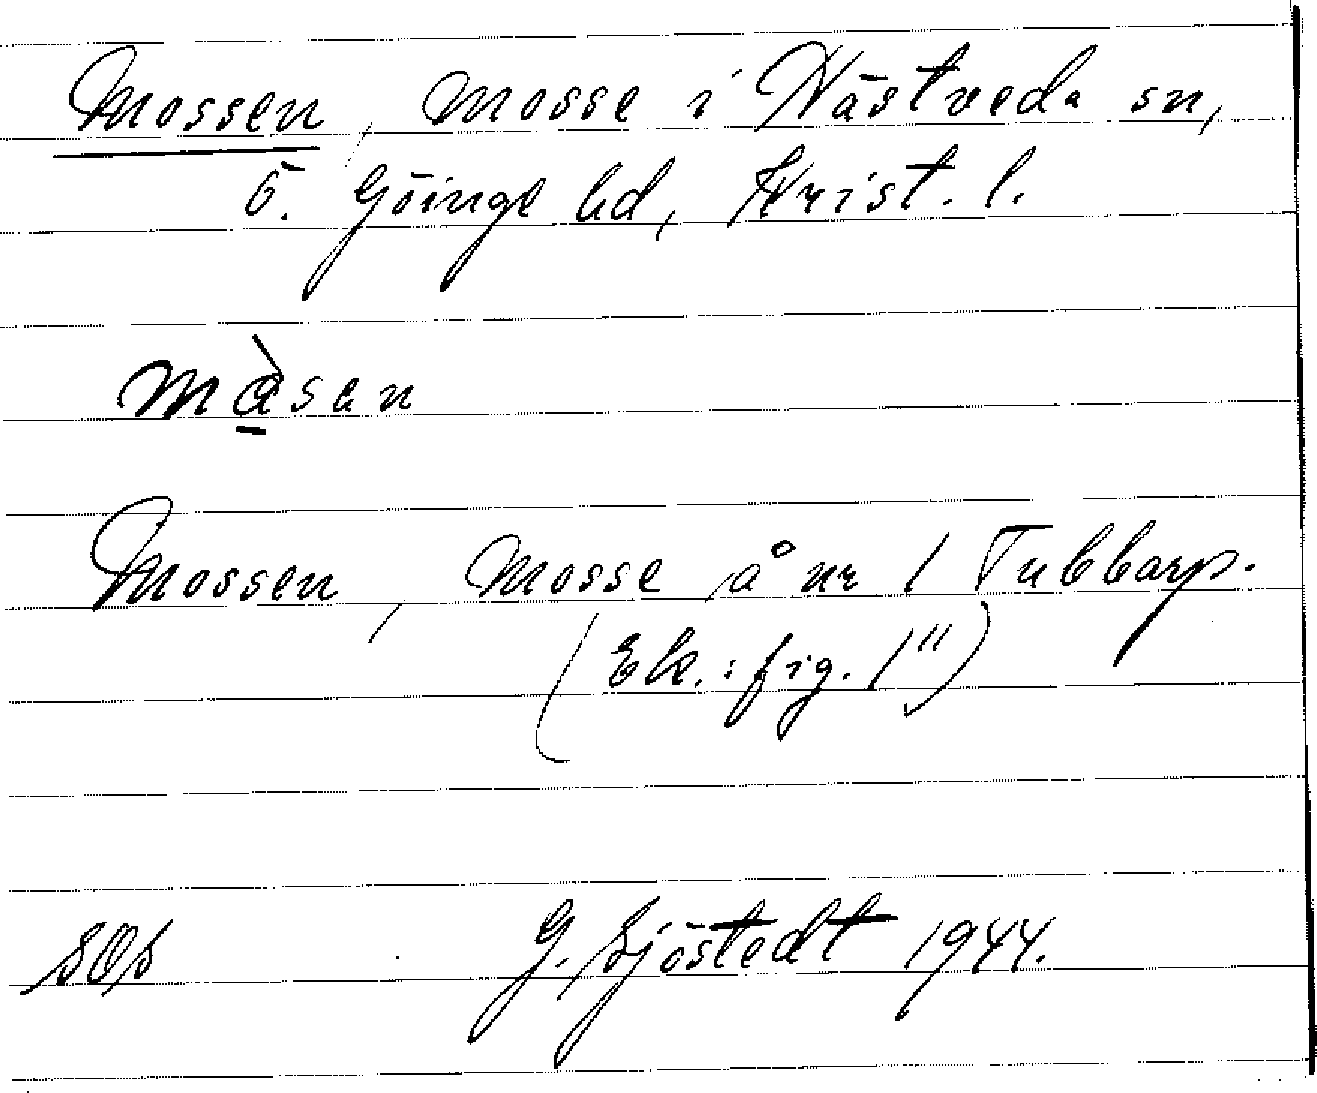 Mossen, mosse i Hästveda sn,
Ö. Göinge hd, Krist. l.
mà̱san
Mossen, Mosse å nr 1 Tubbarp.
(Ek.: fig. 1")
SOs G. Sjöstedt 1944.